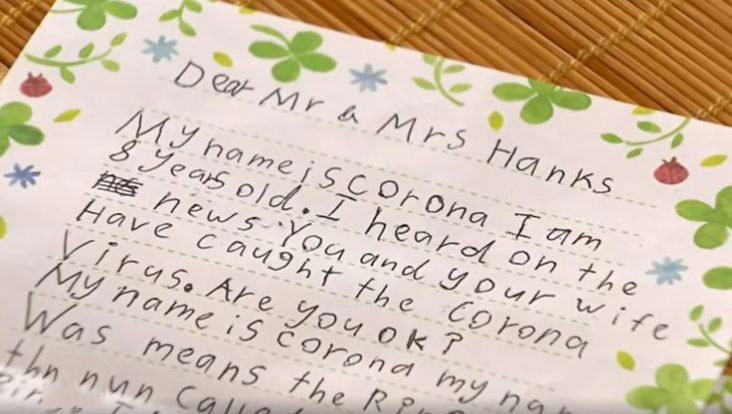 Dear Mr & Mrs Hanks
My name is Corona I am
8 years old. I heard on the
news. You and your wife
Have caught the corona
Virus. Are you ok?
My name is corona my na
Was means the Rin
thn nun Calle